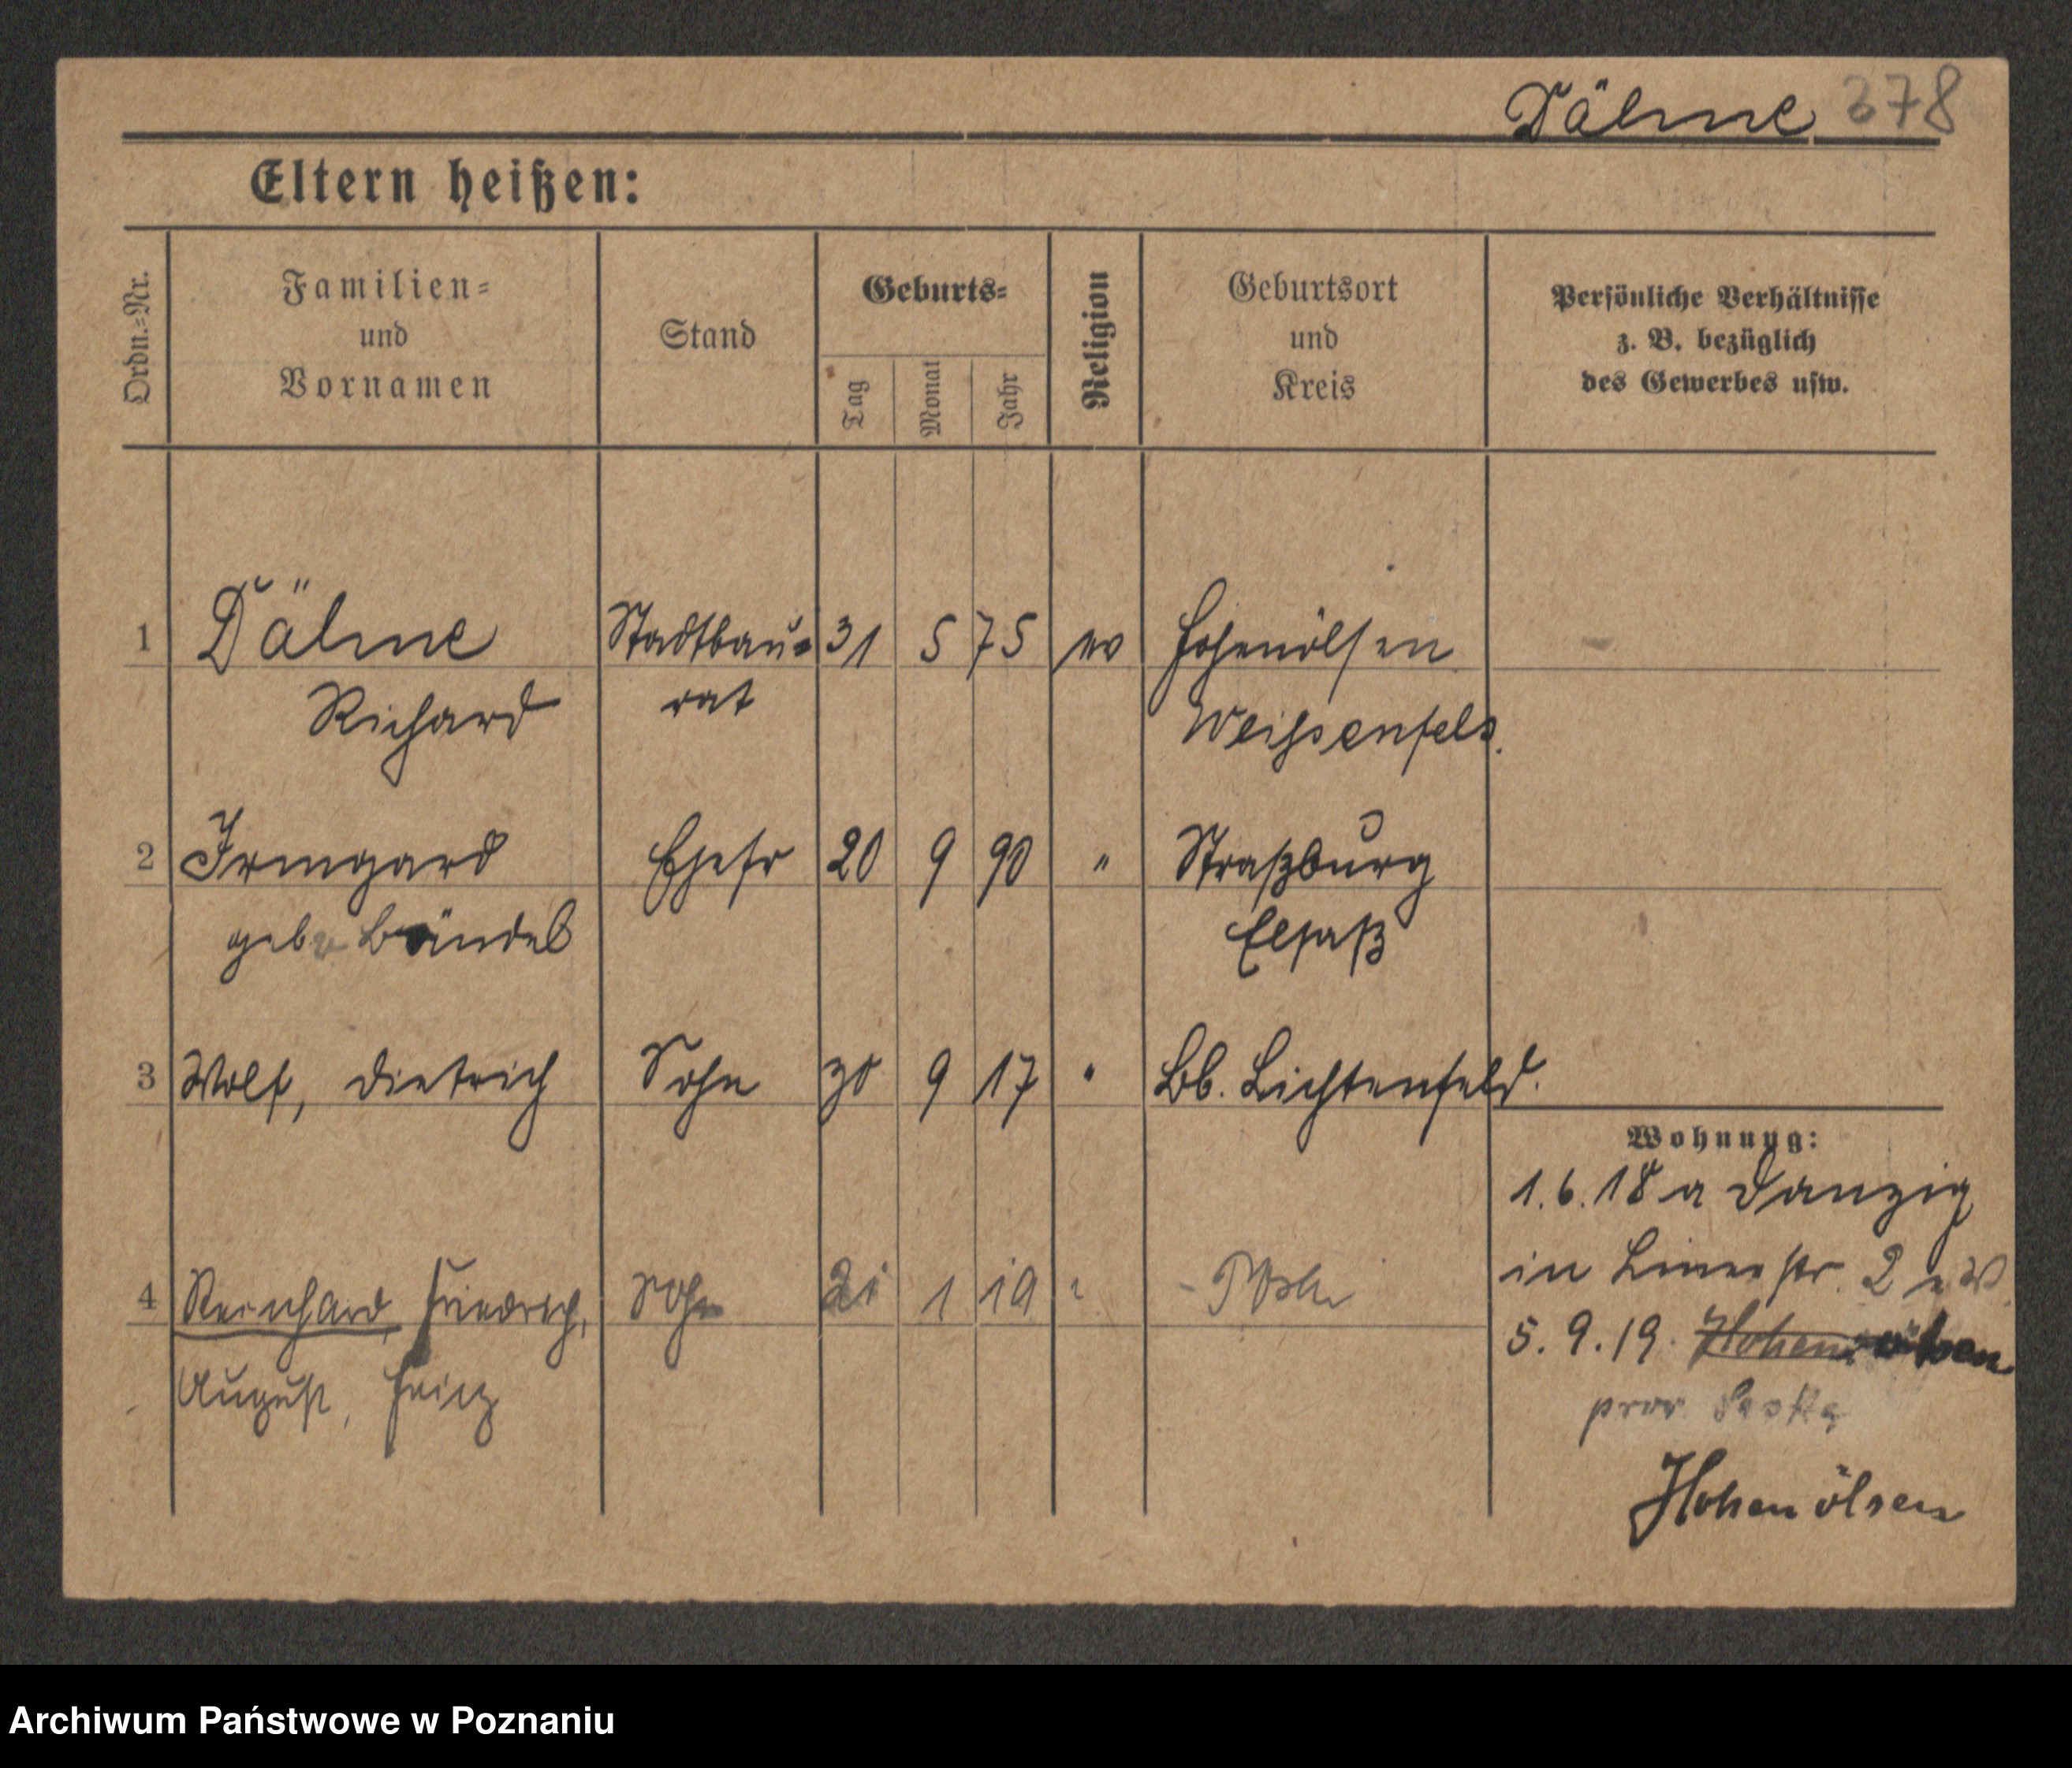 Dälme 378
Eltern heißen:
Ordn.=Nr.
Familien=
und
Vornamen
Stand
Geburts=
Tag
Monat
Jahr
Religion
Geburtsort
und
Kreis
Persönliche Verhältnisse
z. B. bezüglich
des Gewerbes usw.
1 Dälme Stadtbau= 31 5 75 ev Hohenölsen
Richard rat Weißenfels.
2 Irmgard Ehefr 20 9 90 " Straßburg
geb. Elsaß
3 Wolf, Dietrich Sohn 30 9 17 " Bb. Lichtenfeld.
Wohnung:
1.6.18 a Danzig
in
4 Reinhard, Friedrich, Sohn 21 1 19 " Posen
5.9.19. Hohenölsen
August, Heinz
prov.
Hohenölsen
Archiwum Państwowe w Poznaniu